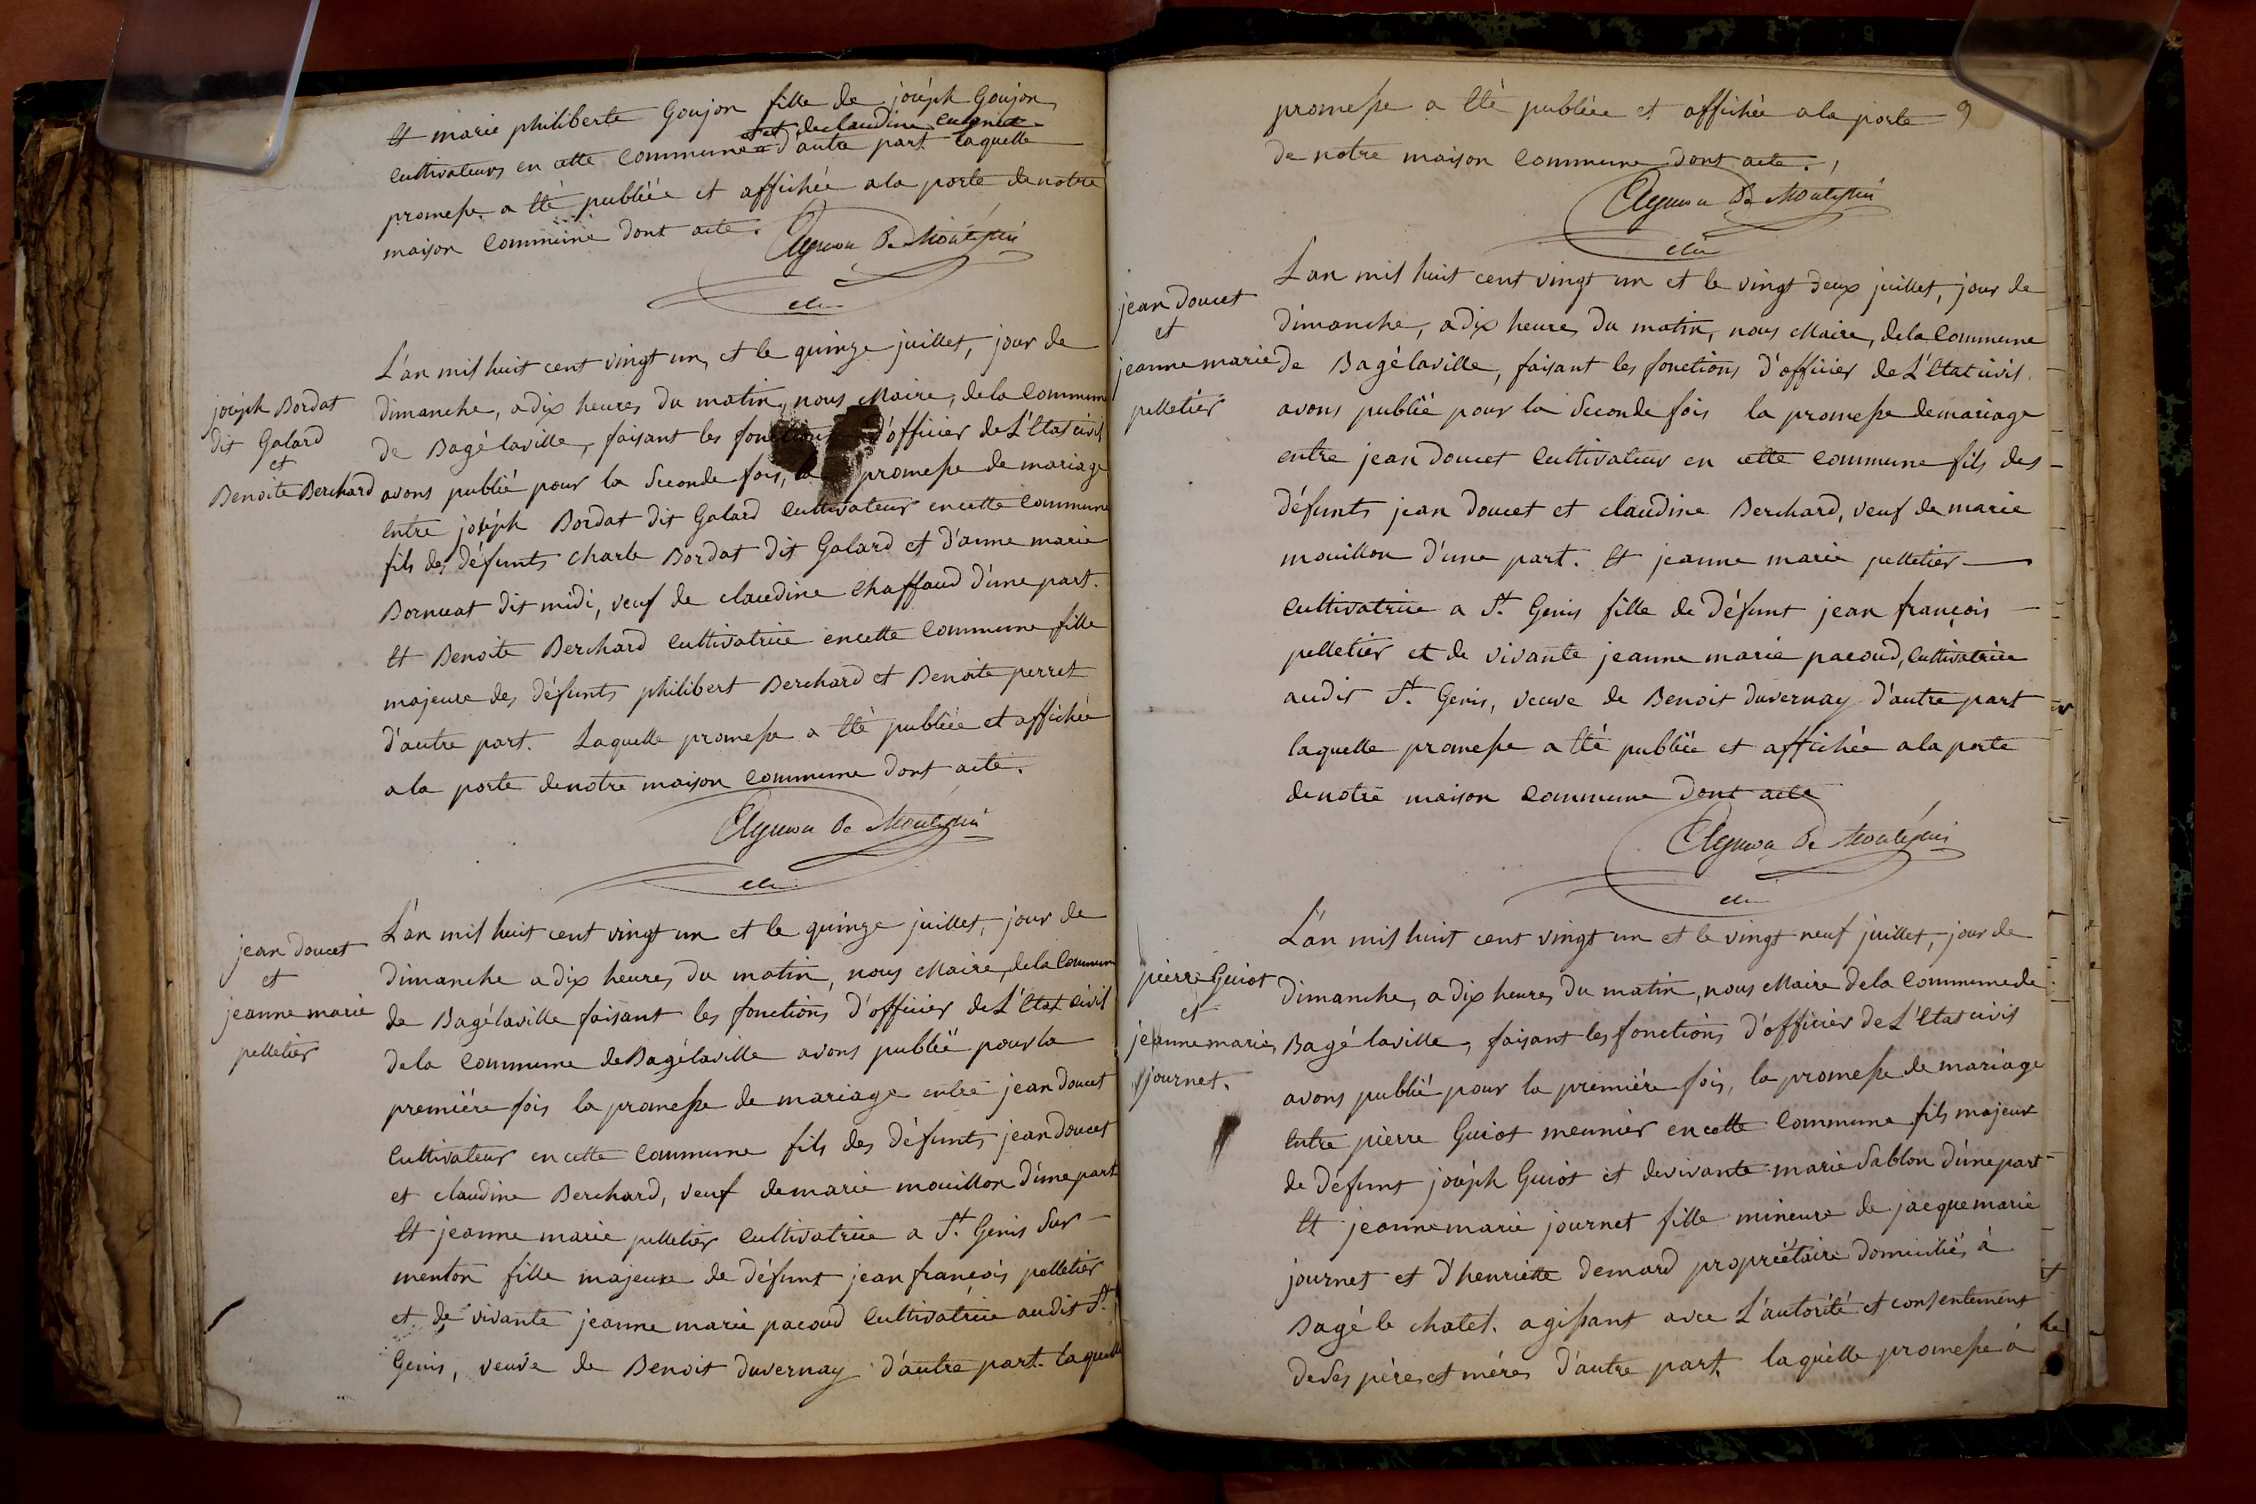 Et marie philiberte Goujon fille de joséph Goujon
et de claudine
cultivateurs en cette commune d'autre part laquelle
promesse a été publiée et affichée a la porte de notre
maison commune dont acte.
joséph Bordat
dit Galard
et
Benoite Berchard
L'an mil huit cent vingt un, et le quinze juillet, jour de
dimanche, a dix heures du matin, nous Maire, de la commune
de Bagé laville, faisant les fonctions d'officier de L'Etat civil
avons publié pour la Seconde fois, la promesse de mariage
entre joséph Bordat dit Galard cultivateur en cette commune
fils des défunts charle Bordat dit Galard et d'anne marie
Bornuat dit midi, veuf de claudine Chaffaud d'une part.
Et Benoite Berchard cultivatrice en cette commune fille
majeure des défunts philibert Berchard et Benoite perret
d'autre part. Laquelle promesse a été publiée et affichée
a la porte de notre maison commune dont acte.
jean doucet
et
jeanne marie
pelletier
L'an mil huit cent vingt un et le quinze juillet, jour de
dimanche a dix heures du matin, nous Maire, de la Commune
de Bagé laville faisant les fonctions d'officier de L'Etat civil
de la commune de Bagé laville avons publié pour la
premiére fois la promesse de mariage entre jean doucet
cultivateur en cette commune fils des défunts jean doucet
et claudine Berchard, veuf de marie mouillon d'une part
Et jeanne marie pelletier cultivatrice a St. Genis Sur
menton fille majeure de défunt jean françois pelletier
et de vivante jeanne marie pacoud cultivatrice audit St.
Genis, veuve de Benoit duvernay d'autre part. laquelle
9
promesse a été publiée et affichée a la porte
de notre maison commune dont acte.
jean doucet
et
jeanne marie
pelletier
L'an mil huit cent vingt un et le vingt deux juillet, jour de
dimanche, a dix heures du matin, nous Maire, de la Commune
de Bagé laville, faisant les fonctions d'officier de L'Etat civil
avons publié pour la Seconde fois la promesse de mariage
entre jean doucet cultivateur en cette commune fils des
défunts jean doucet et claudine Berchard, veuf de marie
mouillon d'une part. Et jeanne marie pelletier
cultivatrice a St. Genis fille de défunt jean françois
pelletier et de vivante jeanne marie pacoud, cultivatrice
audit St. Genis, veuve de Benoit duvernay d'autre part
laquelle promesse a été publiée et affichée a la porte
de notre maison commune dont acte
pierre Guiot
et
jeanne marie
journet.
L'an mil huit cent vingt un et le vingt neuf juillet, jour de
dimanche, a dix heures du matin, nous Maire de la commune de
Bagé laville, faisant les fonctions d'officier de L'Etat civil
avons publié pour la premiére fois, la promesse de mariage
Entre pierre Guiot meunier en cette commune fils majeur
de défunt joséph Guiot et de vivante marie Sablon d'une part
Et jeanne marie journet fille mineure de jacque marie
journet et d'henriette demard propriétaire domiciliés à
Bagé le chatel. agissant avec L'autorité et consentement
de Ses pére et mére d'autre part. laquelle promesse à